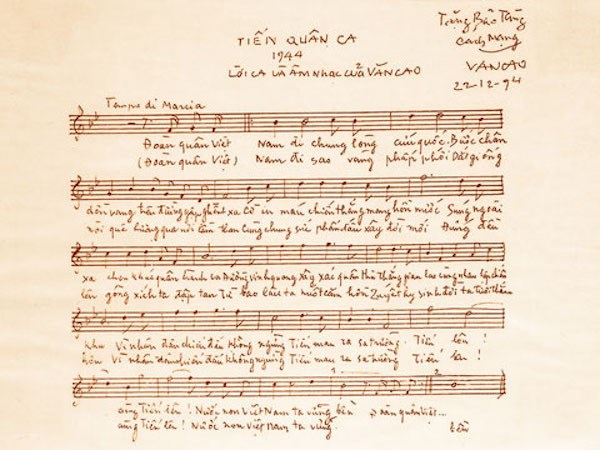 TIẾN QUÂN CA
1944
LỜI CA VÀ ÂM NHẠC CỦA VĂN CAO
Tặng Bảo Tàng
Cách Mạng
VĂN CAO
22-12-94
Tempo di Marcia
Đoàn quân Việt Nam đi chung lòng cứu quốc. Bước chân
(Đoàn quân Việt) Nam đi sao vàng phấp phới Dắt giống
dồn vang trên đường gập ghềnh xa Cờ in máu chiến thắng mang hồn nước Súng ngoài
nòi quê hương qua nơi lầm than Cùng chung sức phấn đấu xây đời mới Đứng đều
xa chen khúc quân hành ca Đường vinh quang xây xác quân thù Thắng gian lao cùng nhau lập chiến
lên gông xích ta đập tan Từ bao lâu ta nuốt căm hờn Quyết hy sinh đời ta tươi thắm
khu Vì nhân dân chiến đấu không ngừng Tiến mau ra sa trường. Tiến lên!
hơn Vì nhân dân chiến đấu không ngừng Tiến mau ra sa trường Tiến lên!
cùng Tiến lên! Nước non Việt Nam ta vững bền đoàn quân Việt...
cùng Tiến lên! Nước non Việt Nam ta vững
bền